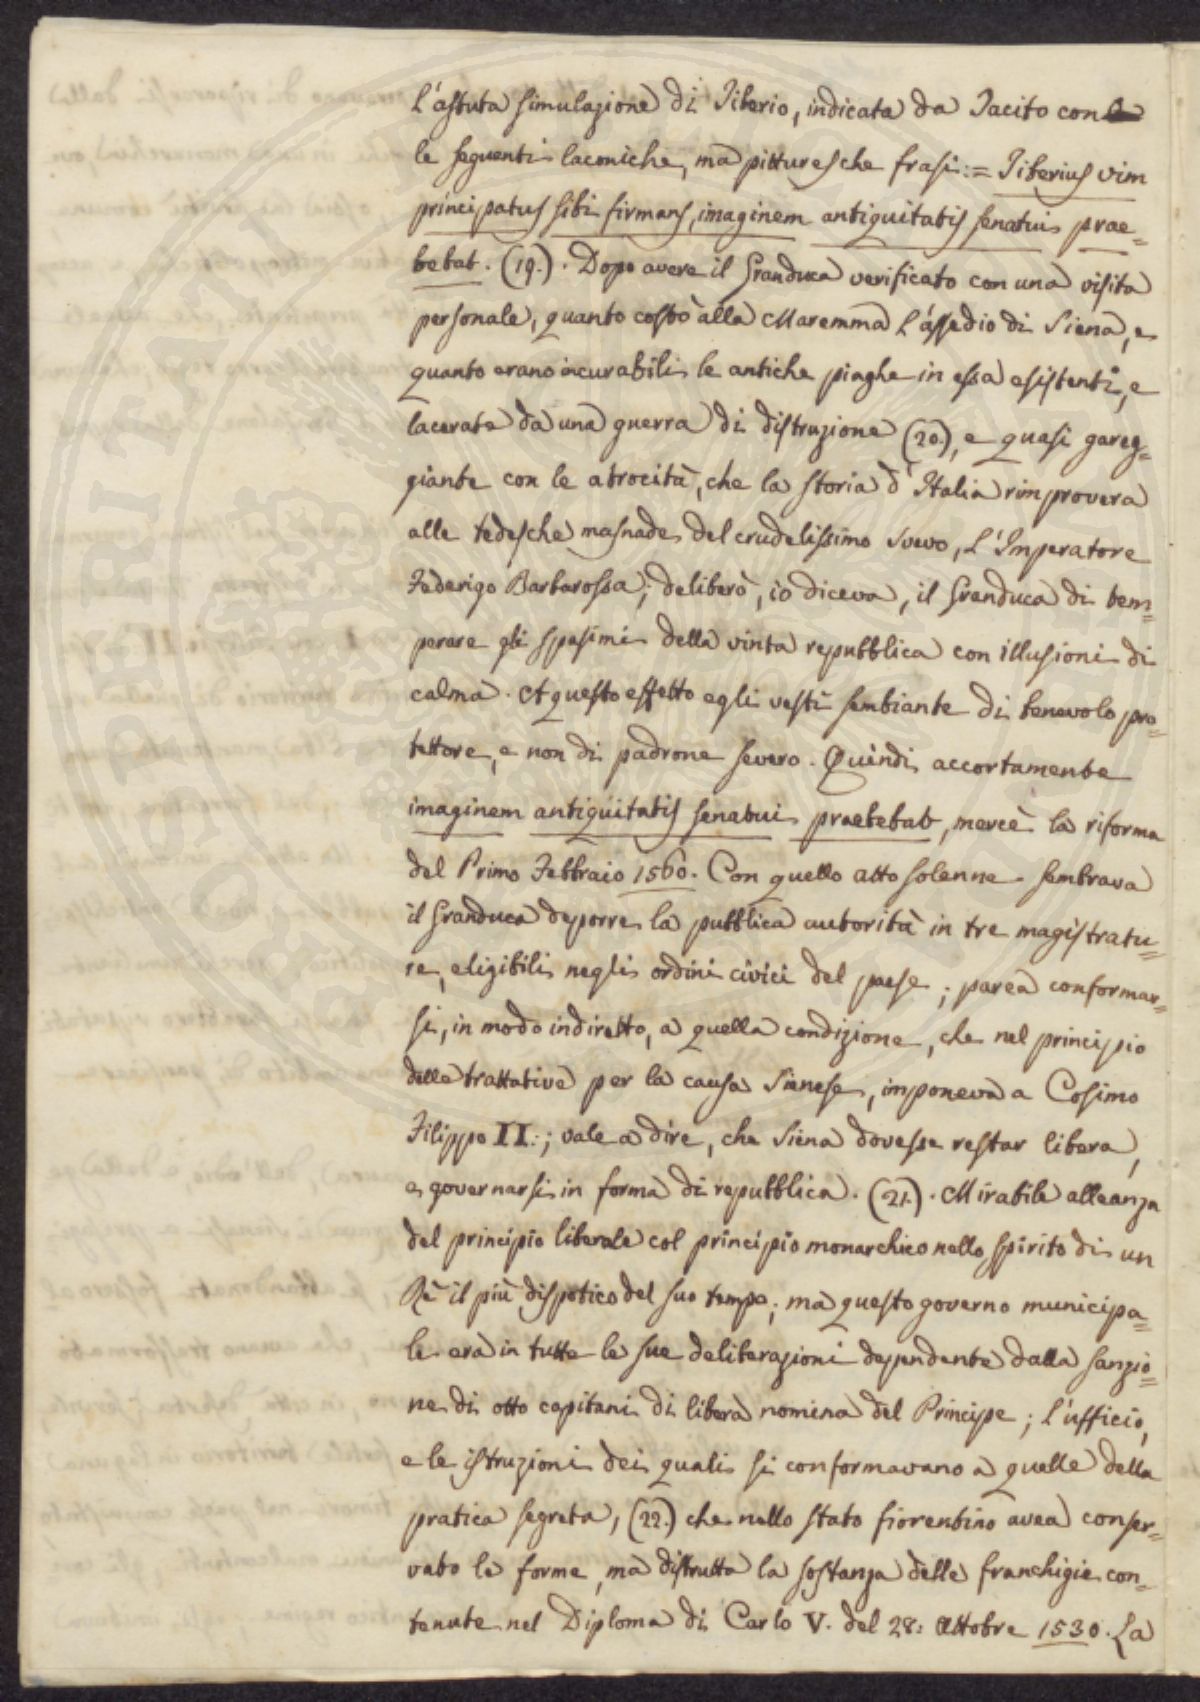 l'astuta simulazione di Tiberio, indicata da Tacito con
le seguenti laconiche, ma pitturesche frasi := Tiberius vim
principatus sibi firmans, imaginem antiquitatis senatui prae=
bebat. (19.). Dopo avere il Granduca verificato con una visita
personale, quanto costò alla Maremma l'assedio di Siena, e
quanto erano incurabili le antiche piaghe in essa esistenti, e
lacerate da una guerra di distruzione (20.), e quasi gareg=
giante con le atrocità, che la storia d'Italia rimprovera
alle tedesche masnade del crudelissimo Svevo, l'Imperatore
Federigo Barbarossa; deliberò, io diceva, il Granduca di tem=
perare gli spasimi della vinta repubblica con illusioni di
calma. A questo effetto egli vestì sembiante di benevolo pro=
tettore, e non di padrone severo. Quindi accortamente
imaginem antiquitatis senatui praebebat, mercè la riforma
del Primo Febbraio 1560. Con quello atto solenne sembrava
il Granduca deporre la pubblica autorità in tre magistratu=
re, eligibili negli ordini civici del paese; parea conformar=
si, in modo indiretto, a quella condizione, che nel principio
delle trattative per la causa Sienese, imponeva a Cosimo
Filippo II.; vale a dire, che Siena dovesse restar libera,
e governarsi in forma di repubblica. (21.). Mirabile alleanza
del principio liberale col principio monarchico nello spirito di un
Rè il più dispotico del suo tempo; ma questo governo municipa=
le era in tutte le sue deliberazioni dependente dalla sanzio=
ne di otto capitani di libera nomina del Principe; l'ufficio,
e le istruzioni dei quali si conformavano a quelle della
pratica segreta, (22.) che nello stato fiorentino avea conser=
vato le forme, ma distrutta la sostanza delle franchigie con=
tenute nel Diploma di Carlo V. del 28: Ottobre 1530. La